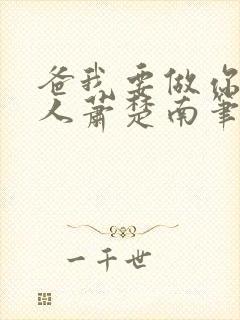 爸我要做你
人萧楚南笔
一千世